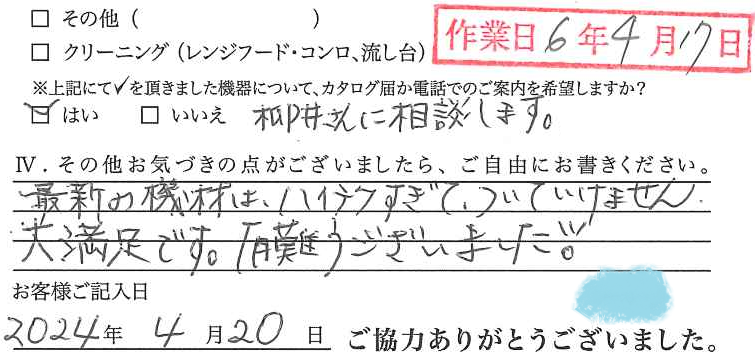 □ その他（　　　　　　　　　）
□ クリーニング（レンジフード・コンロ、流し台）
作業日 6年4月17日
※上記にて✓を頂きました機器について、カタログ届か電話でのご案内を希望しますか？
☑ はい　□ いいえ　柳井さんに相談します。
Ⅳ．その他お気づきの点がございましたら、ご自由にお書きください。
最新の機材は、ハイテクすぎて、ついていけません.
大満足です。有難うございました。
お客様ご記入日
2024年 4月20日　ご協力ありがとうございました。